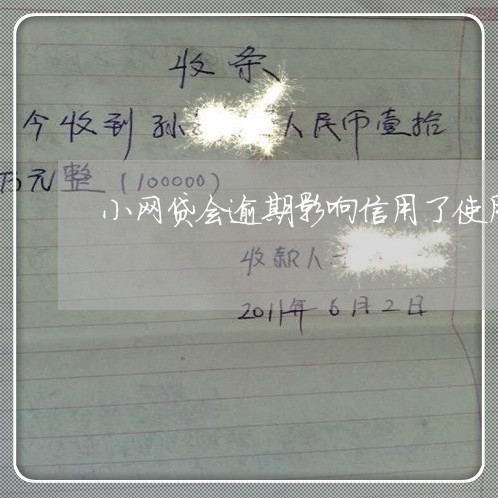 收条
今收到孙 人民币壹拾
万元整（100000）
小网贷会逾期影响信用了使用
收款人
2011年6月2日